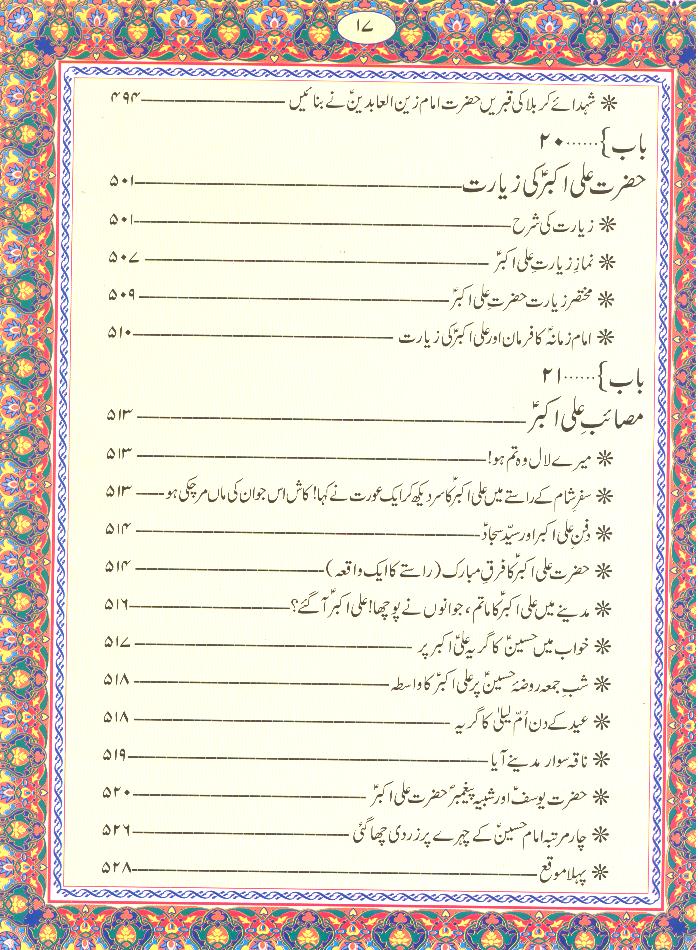 ۱۷
❋ شہدائے کربلا کی قبریں حضرت امام زین العابدینؑ نے بنائیں ——— ۴۹۴
باب }......۲۰
حضرت علی اکبرؑ کی زیارت ——— ۵۰۱
❋ زیارت کی شرح ——— ۵۰۱
❋ نمازِ زیارتِ علی اکبرؑ ——— ۵۰۷
❋ مختصر زیارت حضرتِ علی اکبرؑ ——— ۵۰۹
❋ امام زمانہؑ کا فرمان اور علی اکبرؑ کی زیارت ——— ۵۱۰
باب }......۲۱
مصائبِ علی اکبرؑ ——— ۵۱۳
❋ میرے لال وہ تم ہو! ——— ۵۱۳
❋ سفرِ شام کے راستے میں علی اکبرؑ کا سر دیکھ کر ایک عورت نے کہا! کاش اس جوان کی ماں مر چکی ہو ——— ۵۱۳
❋ دفنِ علی اکبر اور سیّد سجادؑ ——— ۵۱۴
❋ حضرت علی اکبرؑ کا فرقِ مبارک (راستے کا ایک واقعہ) ——— ۵۱۴
❋ مدینے میں علی اکبرؑ کا ماتم، جوانوں نے پوچھا! علی اکبرؑ آگئے؟ ——— ۵۱۶
❋ خواب میں حسینؑ کا گریہ علیؑ اکبر پر ——— ۵۱۷
❋ شبِ جمعہ روضۂ حسینؑ پر علی اکبرؑ کا واسطہ ——— ۵۱۸
❋ عید کے دن اُمّ لیلیٰ کا گریہ ——— ۵۱۸
❋ ناقہ سوار مدینے آیا ——— ۵۱۹
❋ حضرت یوسفؑ اور شبیہِ پیغمبرؐ حضرت علی اکبرؑ ——— ۵۲۰
❋ چار مرتبہ امام حسینؑ کے چہرے پر زردی چھا گئی ——— ۵۲۶
❋ پہلا موقع ——— ۵۲۸